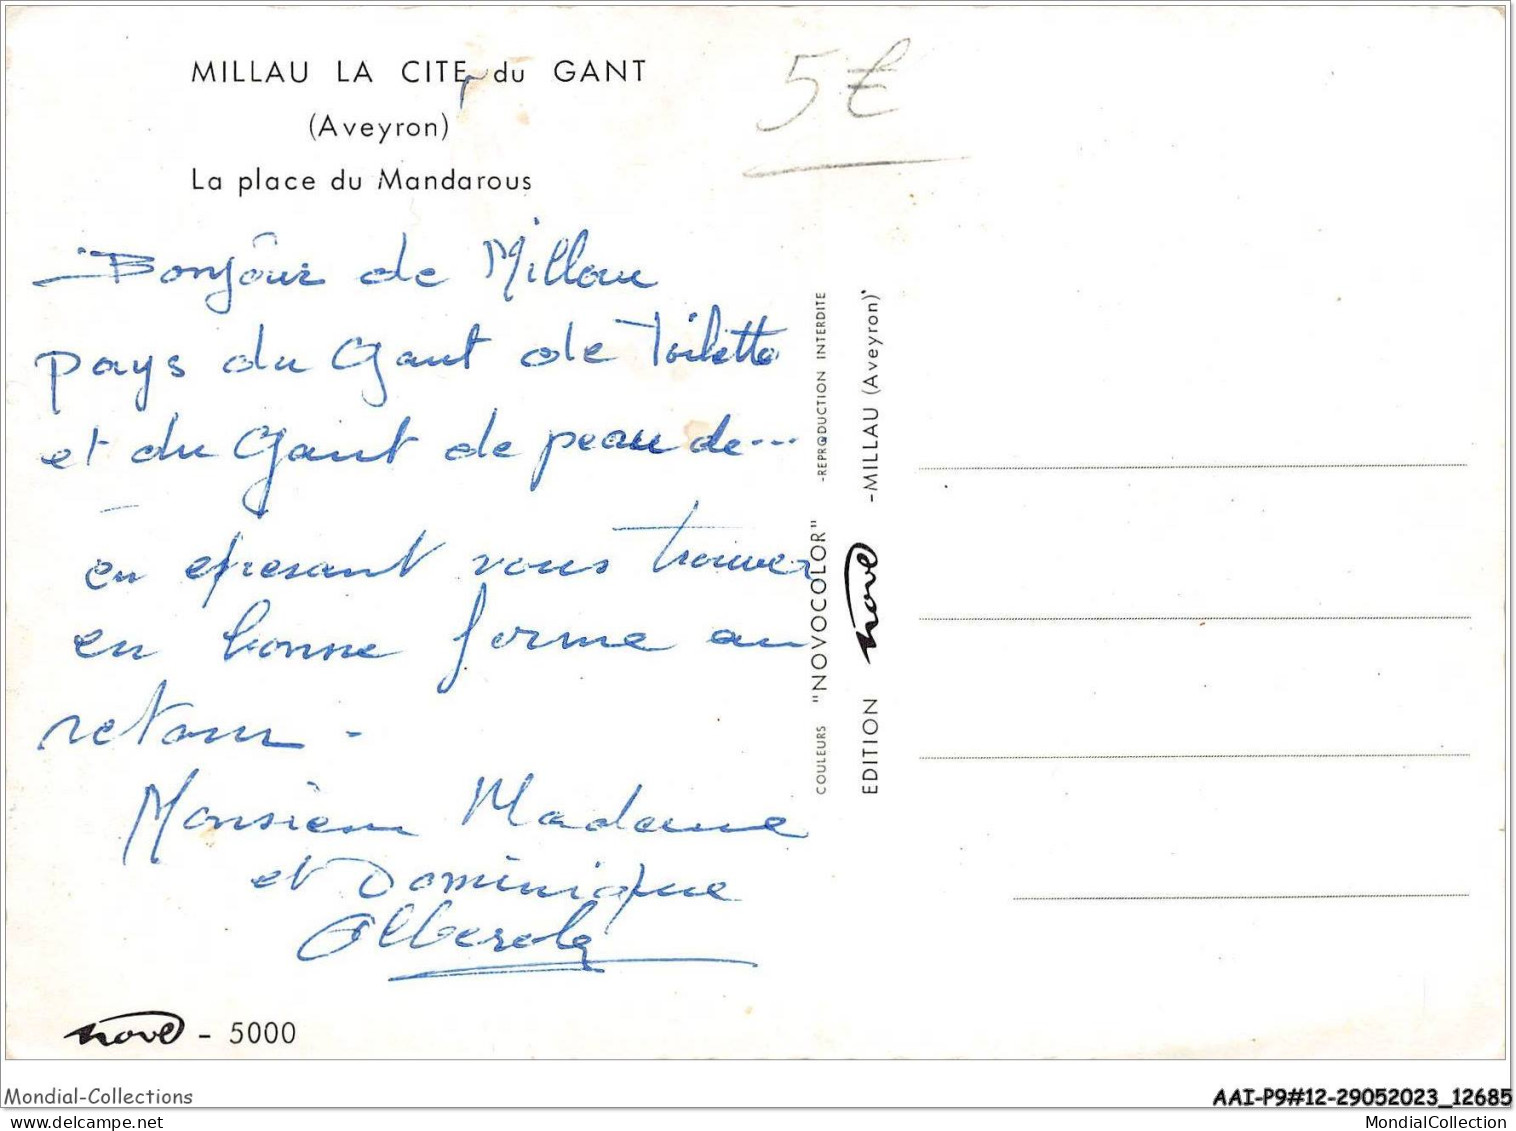 MILLAU LA CITE du GANT
(Aveyron)
La place du Mandarous
5€
Bonjour de Millau
pays du Gant de Toilette
et du Gant de peau de...
en epresant vous trouver
en bonne forme au
retour -
Monsieur Madame
et Dominique
Alberola
nove - 5000
COULEURS "NOVOCOLOR" -REPRODUCTION INTERDITE
EDITION nove -MILLAU (Aveyron)
Mondial-Collections
AAI-P9#12-29052023_12685
MondialCollection